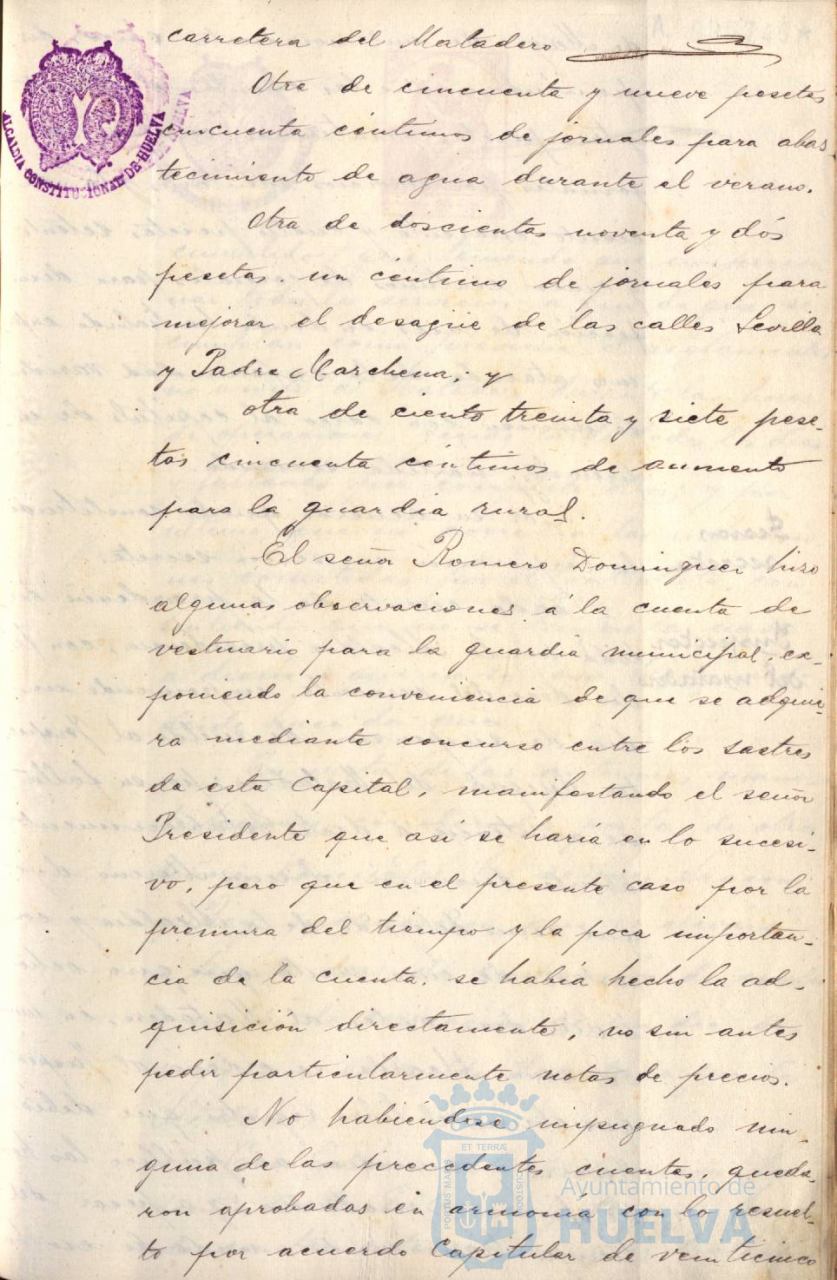 carretera del Matadero
Otra de cincuenta y nueve pesetas
cincuenta céntimos de jornales para abas-
tecimiento de agua durante el verano.
Otra de doscientas noventa y dós
pesetas. un céntimo de jornales para
mejorar el desagüe de las calles Sevilla
y Padre Marchena; y
otra de ciento treinta y siete pese-
tas cincuenta céntimos de aumento
para la guardia rural.
El señor Romero Dominguez hizo
algunas observaciones á la cuenta de
vestuario para la guardia municipal, ex-
poniendo la conveniencia de que se adquie-
ra mediante concurso entre los sastres
de esta Capital, manifestando el señor
Presidente que asi se haria en lo sucesi-
vo, pero que en el presente caso por la
premura del tiempo y la poca importan-
cia de la cuenta. se habia hecho la ad-
quisición directamente, no sin antes
pedir particularmente notas de precios.
No habiéndose impugnado nin-
guna de las precedentes cuentas, queda-
ron aprobadas en armonía con lo resuel-
to por acuerdo Capitular de veinticinco
ALCALDIA CONSTITUCIONAL DE HUELVA
ET TERRÆ
PORTUS MARIS
CUSTODIA
Ayuntamiento de
HUELVA